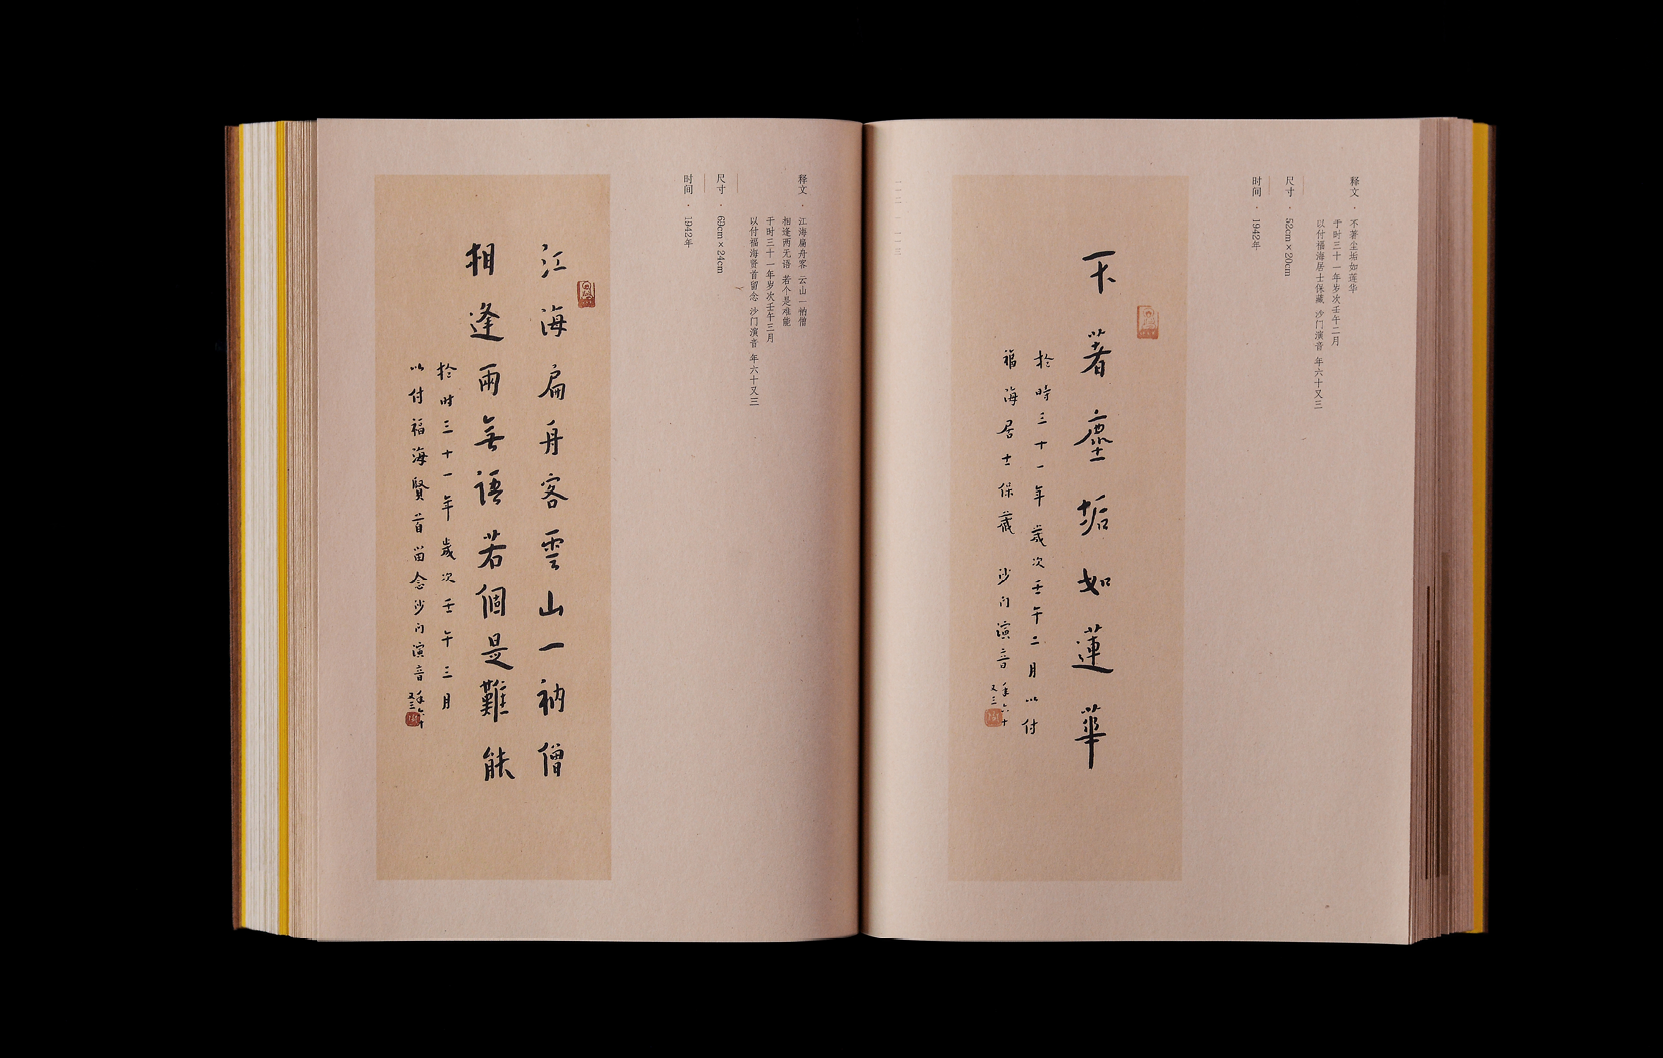 释文·不著尘垢如莲华
于时三十一年岁次壬午二月
以付福海居士保藏 沙门演音 年六十又三
尺寸·52cm×20cm
时间·1942年
不著塵垢如蓮華
於時三十一年歲次壬午二月以付
福海居士保藏 沙门演音年六十
又三
释文·江海扁舟客 云山一衲僧
相逢两无语 若个是难能
于时三十一年岁次壬午三月
以付福海贤首留念 沙门演音 年六十又三
尺寸·69cm×24cm
时间·1942年
江海扁舟客雲山一衲僧
相逢兩無語若個是難能
於時三十一年歲次壬午三月
以付福海賢首留念沙门演音年六十
又三